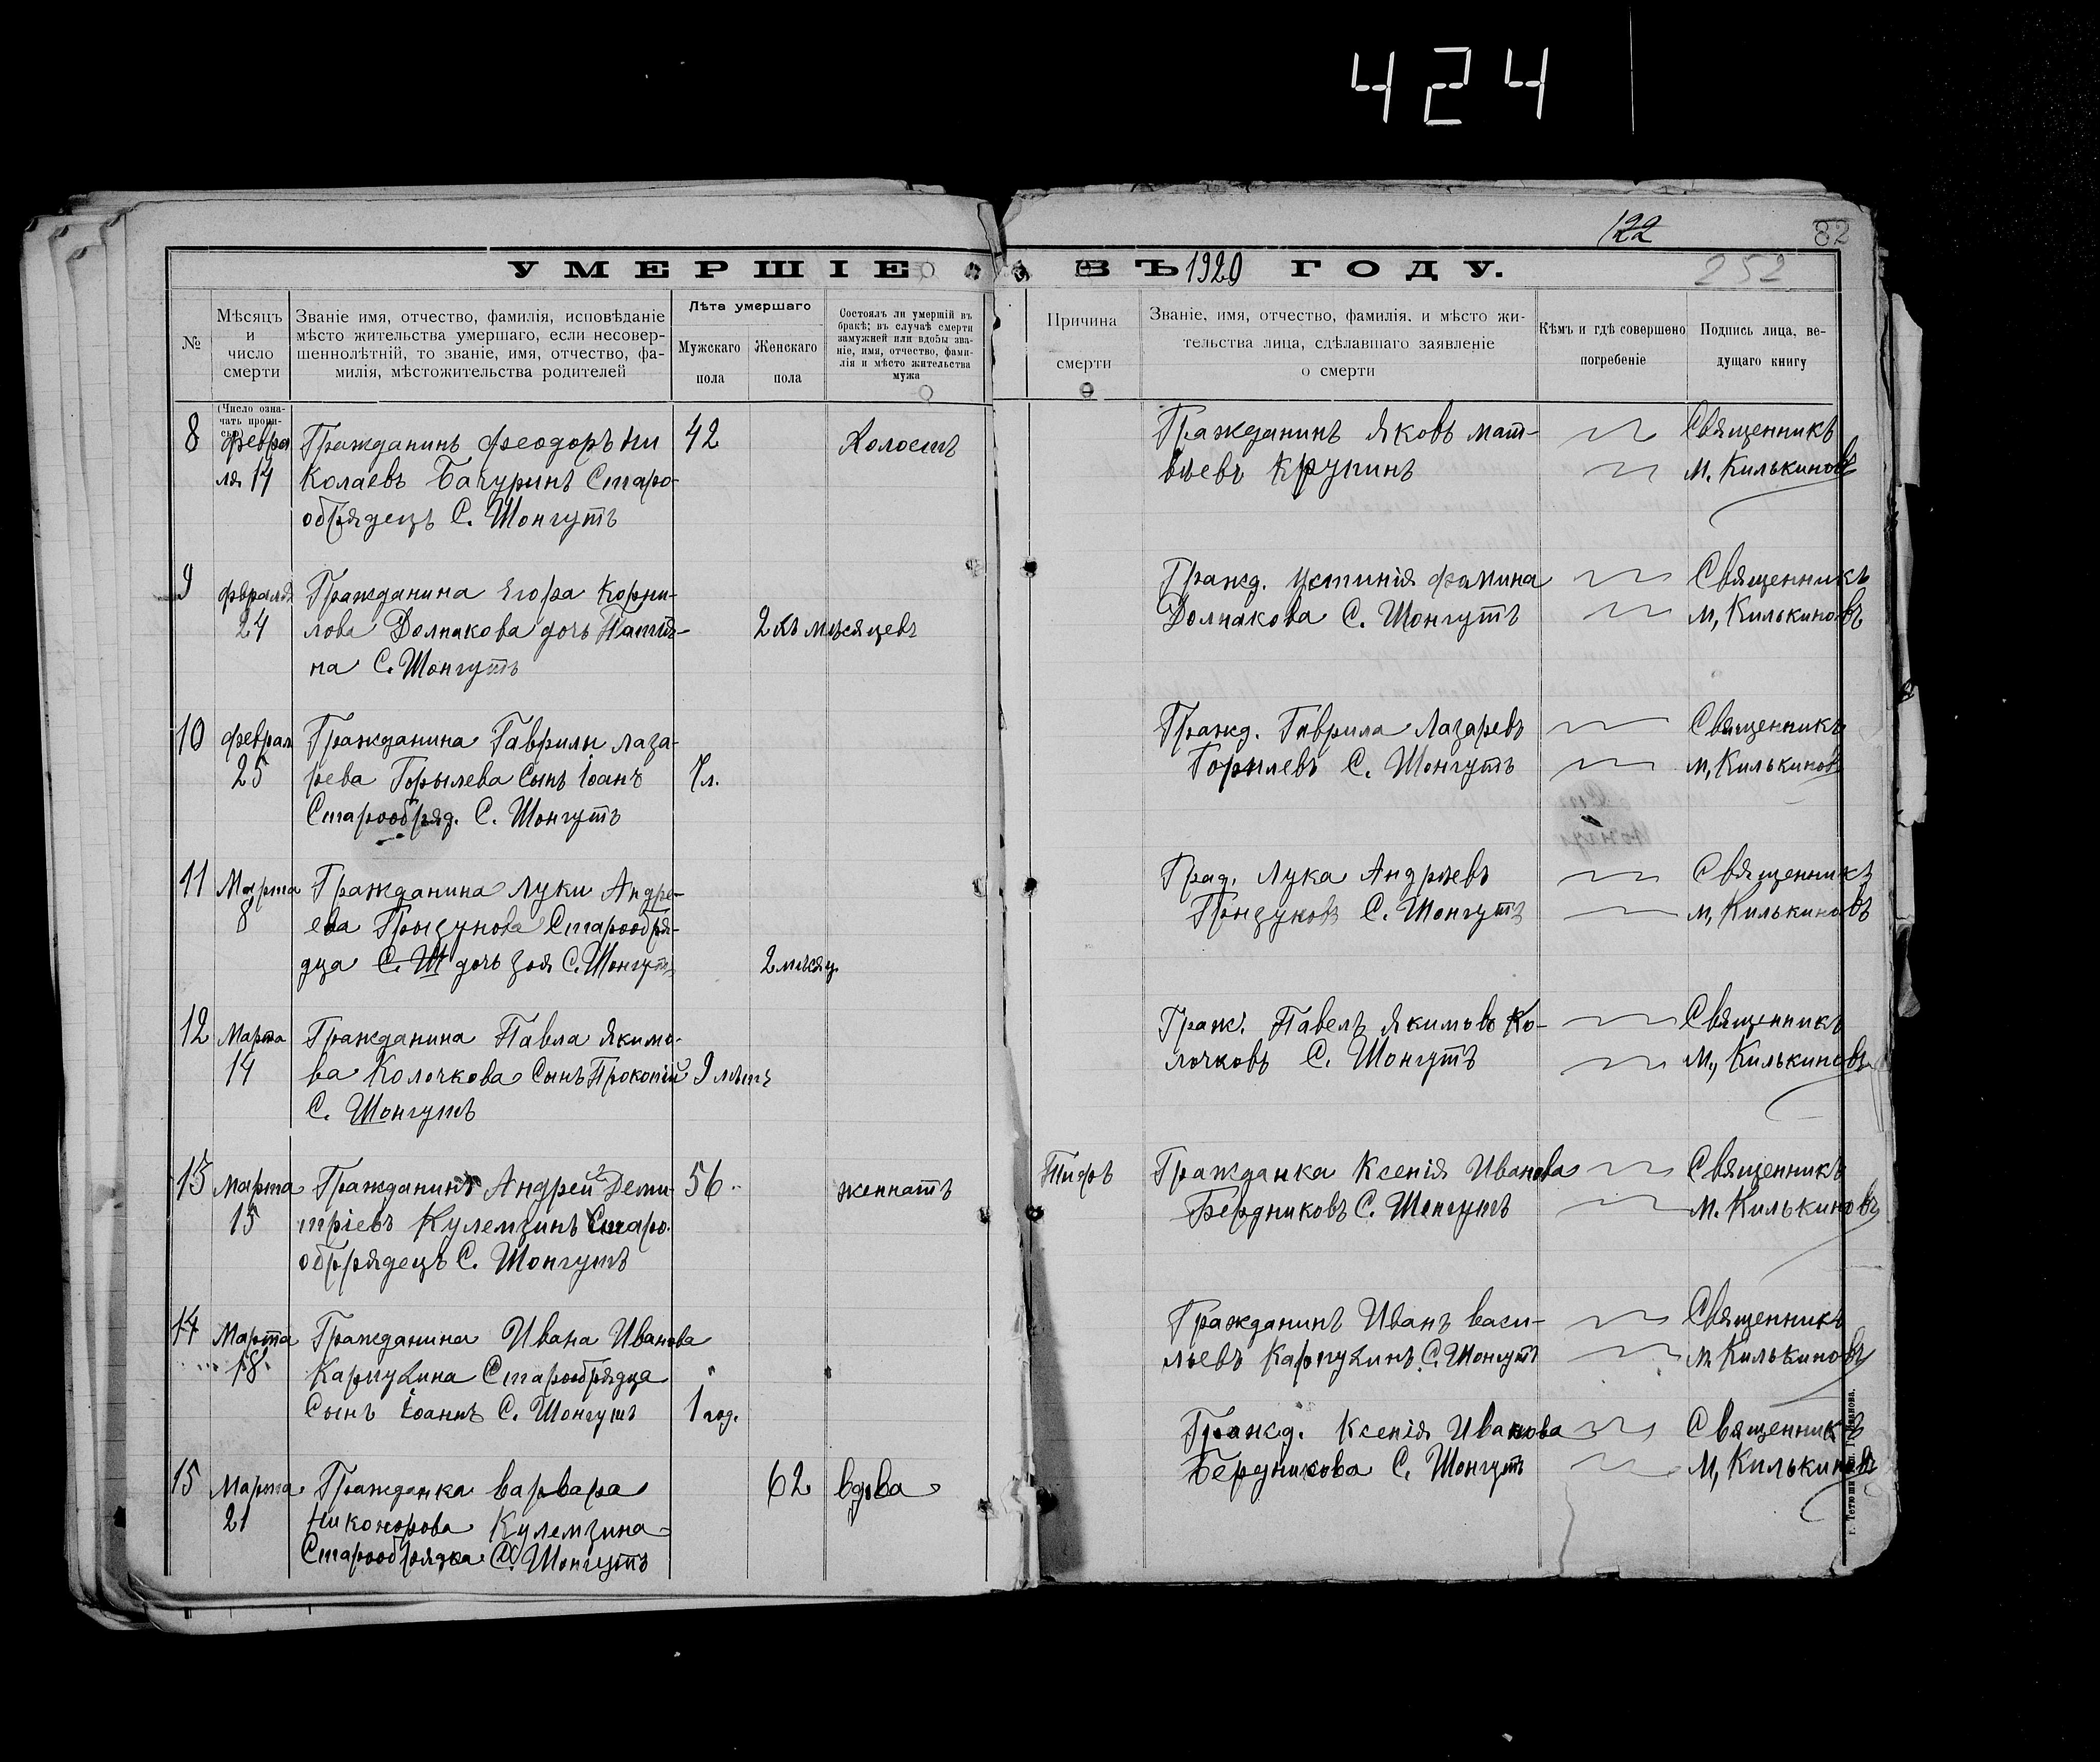 424
122
82
252
УМЕРШІЕ ВЪ 1920 ГОДУ.
№
Мѣсяцъ
и
число
смерти
(Число озна-
чать пропи-
сью)
Званіе имя, отчество, фамилія, исповѣданіе
мѣсто жительства умершаго, если несовер-
шеннолѣтній, то званіе, имя, отчество, фа-
милія, мѣстожительства родителей
Лѣта умершаго
Мужскаго
пола
Женскаго
пола
Состоялъ ли умершій въ
бракѣ; въ случаѣ смерти
замужней или вдовы зва-
ніе, имя, отчество, фами-
лія и мѣсто жительства
мужа
Причина
смерти
Званіе, имя, отчество, фамилія, и мѣсто жи-
тельства лица, сдѣлавшаго заявленіе
о смерти
Кѣмъ и гдѣ совершено
погребеніе
Подпись лица, ве-
дущаго книгу
8 Февра Гражданинъ Феодоръ Ни 42 Холостъ Гражданинъ Яковъ Мат- Священникъ
ля 14 колаевъ Бачуринъ Старо- вѣевъ Крупинъ М. Килькиновъ
обрядецъ С. Шонгутъ
9 Февраля Гражданина Егора Корни- Гражд. Устинія Фомина Священникъ
24 лова Долнакова дочь 2хъ мѣсяцевъ Долнакова С. Шонгутъ М, Килькиновъ
на С. Шонгутъ
10 Феврал Гражданина Гаврилы Лаза- Гражд. Гаврила Лазаревъ Священникъ
25 рева Горылева Сынъ Іоанъ 7л. Горылевъ С. Шонгутъ М, Килькиновъ
Старообряд. С. Шонгутъ
11 Марта Гражданина Луки Андре- Град. Лука Андрѣевъ Священникъ
8 ева Старообря- С. Шонгутъ М, Килькиновъ
дца С. Ш дочь Зоя С. Шонгутъ 2 мѣсяц
12 Марта Гражданина Павла Якимо- Граж. Павелъ Якимовъ Ко- Священникъ
14 ва Колочкова Сынъ Прокопій 9 лѣтъ лочковъ С. Шонгутъ М, Килькиновъ
С. Шонгутъ
13 Марта Гражданинъ Андрей Деми- 56 женнатъ Тифъ Гражданка Ксенія Иванова Священникъ
15 тріевъ Кулемзинъ Старо- Бердниковъ С. Шонгутъ М. Килькиновъ
обррядецъ С. Шонгутъ
14 Марта Гражданина Ивана Иванова Гражданинъ Иванъ Васи- Священникъ
18 Карпухина Старообрядца льевъ Карпухинъ С. Шонгутъ М. Килькиновъ
Сынъ Іоаннъ С. Шонгутъ 1 год.
15 Марта Гражданка Варвара 62 вдова Гражд. Ксенія Иванова Священникъ
21 Никонорова Кулемзина Бердникова С. Шонгутъ М, Килькиновъ
Старообрядка С. Шонгутъ